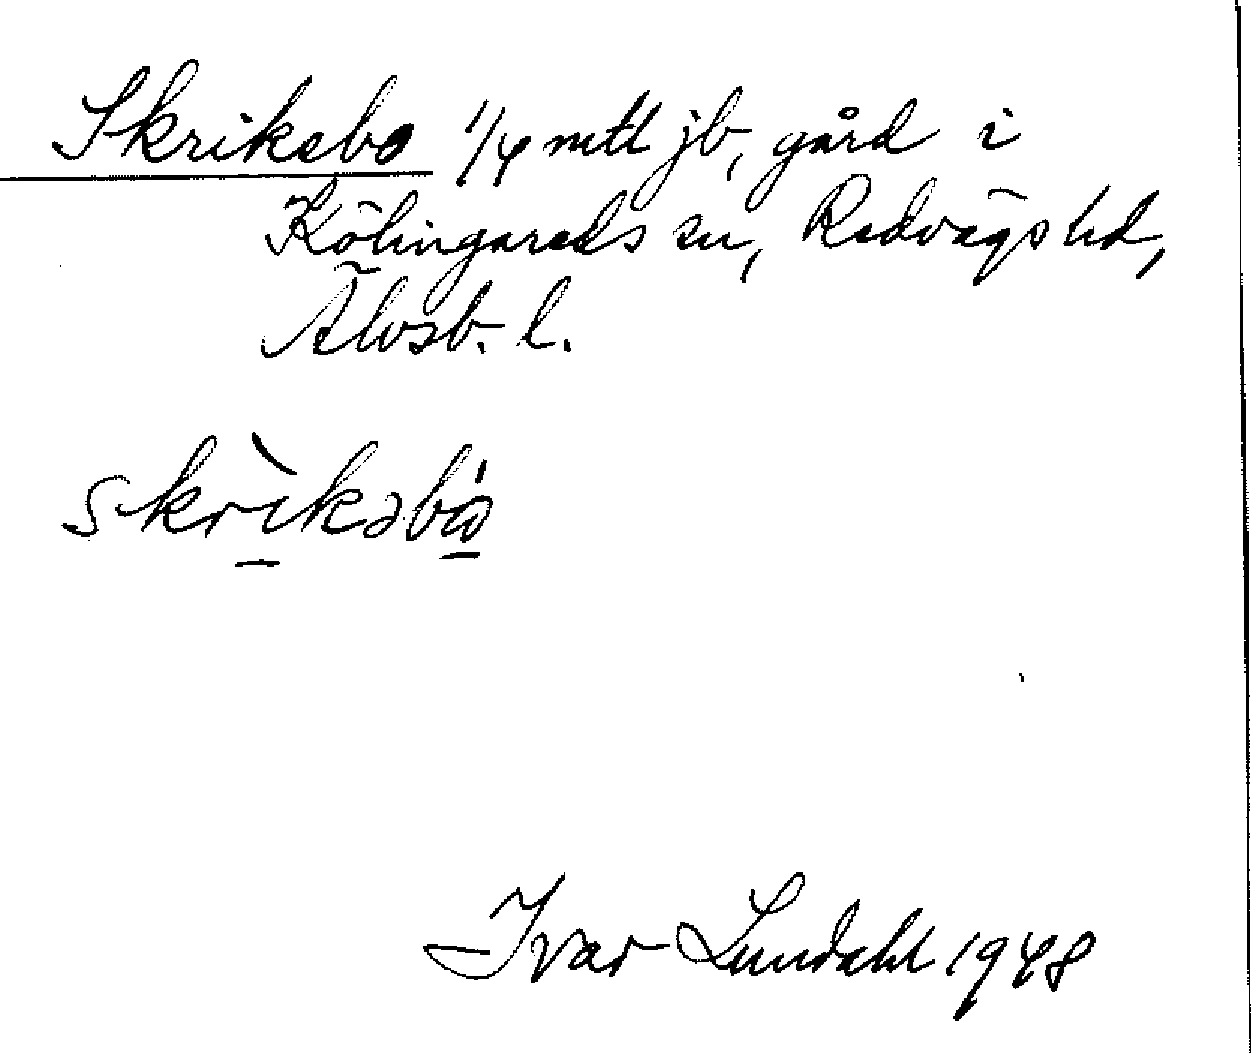 Skrikebo 1/4 mtl jb, gård i
Kölingareds sn, Redvägs hd,
Älvsb. l.
skrìkəbó
Ivar Lundahl 1948